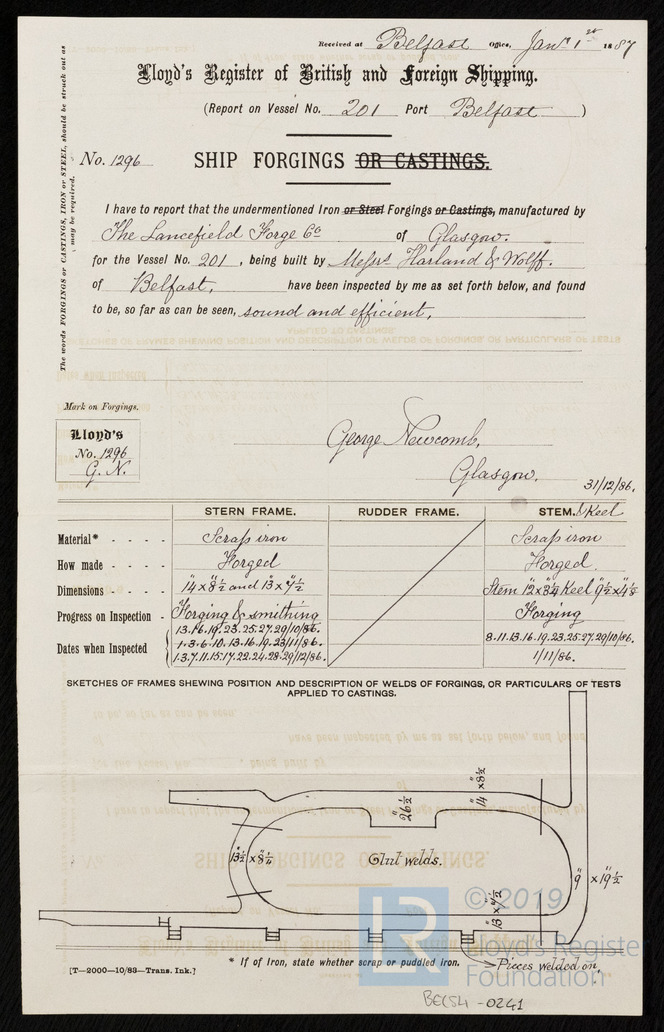 Received at Belfast Office, Jany 1st 1887
Lloyd's Register of British and Foreign Shipping.
(Report on Vessel No. 201 Port Belfast )
No. 1296 SHIP FORGINGS OR CASTINGS.
The words FORGINGS or CASTINGS, IRON or STEEL, should be struck out as
may be required.
I have to report that the undermentioned Iron or Steel Forgings or Castings, manufactured by
The Lancefield Forge Co of Glasgow.
for the Vessel No. 201, being built by Messrs Harland & Wolff.
of Belfast, have been inspected by me as set forth below, and found
to be, so far as can be seen, sound and efficient.
Mark on Forgings.
Lloyd's
No. 1296
G. N.
George Newcomb,
Glasgow. 31/12/86.
STERN FRAME. RUDDER FRAME. STEM. & Keel
Material* Scrap iron Scrap iron
How made Forged Forged.
Dimensions 14" x 8½ and 13" x 7½ Stem 12" x 3¼ Keel 9½" x 4½
Progress on Inspection Forging & smithing Forging
Dates when Inspected 13.16.19.23.25.27.29/10/86. 8.11.13.16.19.23.25.27.29/10/86.
1.3.6.10.13.16.19.23/11/86. 1/11/86.
1.3.7.11.15.17.22.24.28.29/12/86.
SKETCHES OF FRAMES SHEWING POSITION AND DESCRIPTION OF WELDS OF FORGINGS, OR PARTICULARS OF TESTS
APPLIED TO CASTINGS.
26½"
14" x 8½
Glut welds.
9" x 19½
13" x 7½
Pieces welded on.
* If of Iron, state whether scrap or puddled iron.
[T—2000—10/83—Trans. Ink.]
BEC54-0241
© 2019
LR
Lloyd's Register
Foundation